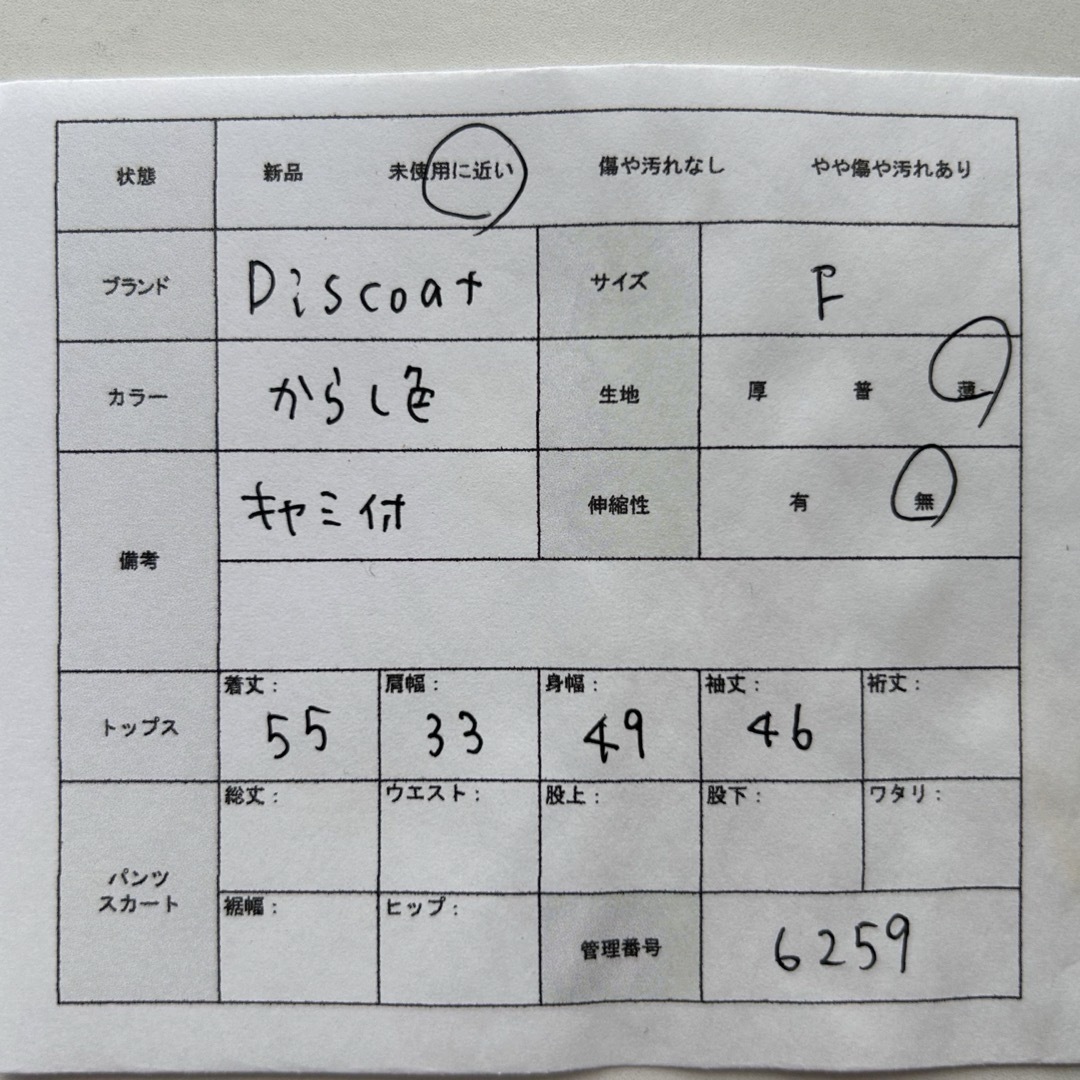 状態 新品 未使用に近い 傷や汚れなし やや傷や汚れあり
ブランド Discoat サイズ F
カラー からし色 生地 厚 普 薄
備考 キャミ付 伸縮性 有 無
トップス 着丈: 55 肩幅: 33 身幅: 49 袖丈: 46 裄丈:
パンツ
スカート
総丈: ウエスト: 股上: 股下: ワタリ:
裾幅: ヒップ: 管理番号 6259